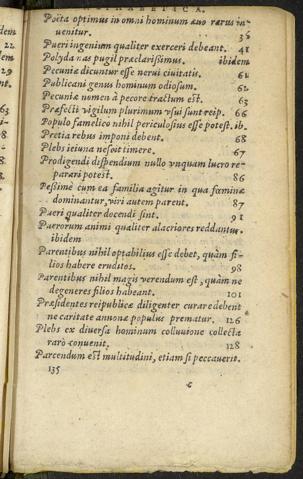 ALPHABETICA.
Poëta optimus in omni hominum æuo rarus in-
uenitur. 36
Pueri ingenium qualiter exerceri debeant. 41
Polydamas pugil præclarissimus. ibidem
Pecuniæ dicuntur esse nerui ciuitatis. 61
Publicani genus hominum odiosum. 62
Pecuniæ nomen à pecore tractum est. 63
Præfecti vigilum plurimum vsui sunt reip. 66
Populo famelico nihil periculosius esse potest. ib.
Pretia rebus imponi debent. 68
Plebs ieiuna nescit timere. 67
Prodigendi dispendium nullo vnquam lucro re-
parari potest. 86
Pessimè cum ea familia agitur in qua fœminæ
dominantur, viri autem parent. 87
Pueri qualiter docendi sint. 91
Puerorum animi qualiter alacriores reddantur.
ibidem
Parentibus nihil optabilius esse debet, quàm fi-
lios habere eruditos. 98
Parentibus nihil magis verendum est, quàm ne
degeneres filios habeant. 101
Præsidentes reipublicæ diligenter curare debent
ne caritate annonæ populus prematur. 126
Plebs ex diuersa hominum colluuione collecta
rarò conuenit. 128
Parcendum est multitudini, etiam si peccauerit.
135
c
idem
22.
dem
29
63
38